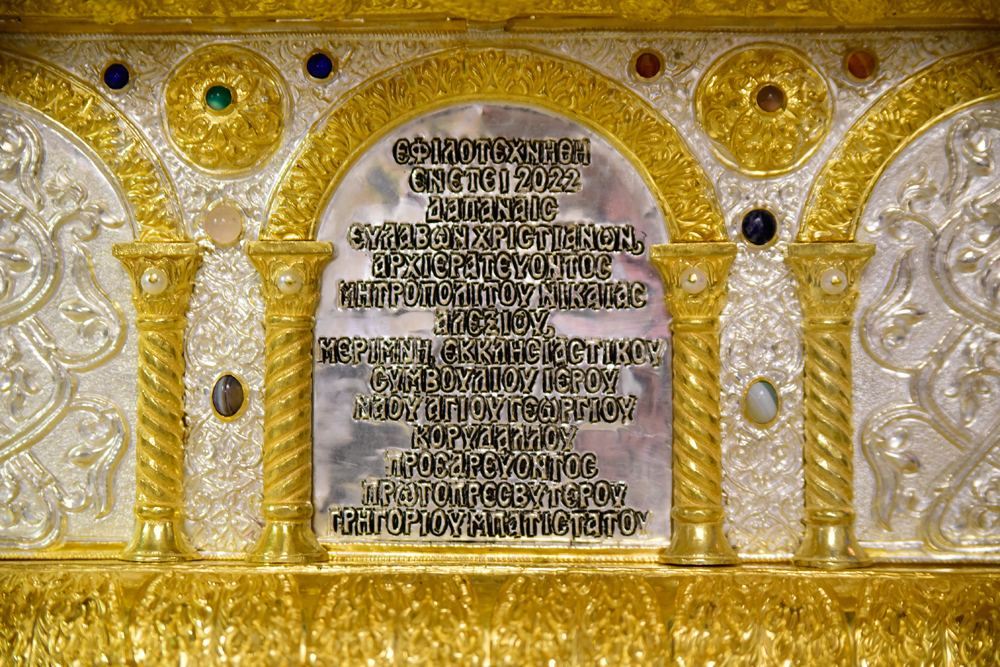 ЄΦΙΛΟΤΕΧΝΗΘΗ
ЄΝ ЄΤЄΙ 2022
ΔΑΠΑΝΑΙС
ЄΥΛΑΒΩΝ ΧΡΙСΤΙΑΝΩΝ,
ΑΡΧΙЄΡΑΤЄΥΟΝΤΟС
ΜΗΤΡΟΠΟΛΙΤΟΥ ΝΙΚΑΙΑС
ΑΛЄΞΙΟΥ,
ΜЄΡΙΜΝΗ, ЄΚΚΛΗСΙΑСΤΙΚΟΥ
СΥΜΒΟΥΛΙΟΥ ΙЄΡΟΥ
ΝΑΟΥ ΑΓΙΟΥ ΓЄΩΡΓΙΟΥ
ΚΟΡΥΔΑΛΛΟΥ
ΠΡΟЄΔΡЄΥΟΝΤΟС
ΠΡΩΤΟΠΡЄСΒΥΤЄΡΟΥ
ΓΡΗΓΟΡΙΟΥ ΜΠΑΤΙСΤΑΤΟΥ